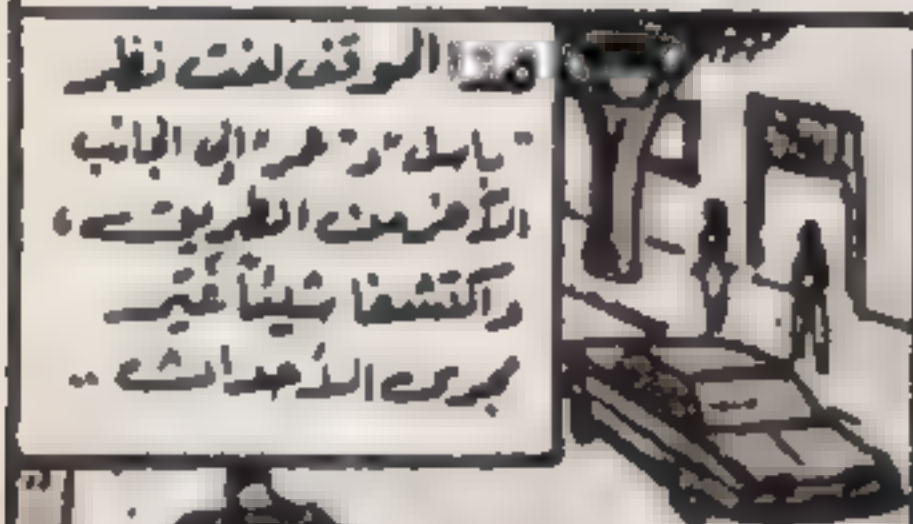 الموقف لفت نظر
"باسل" و" عمر" إلى الجانب
الآخر من الطريق،
واكتشفا شيئاً غيّر
مجرى الأحداث ..